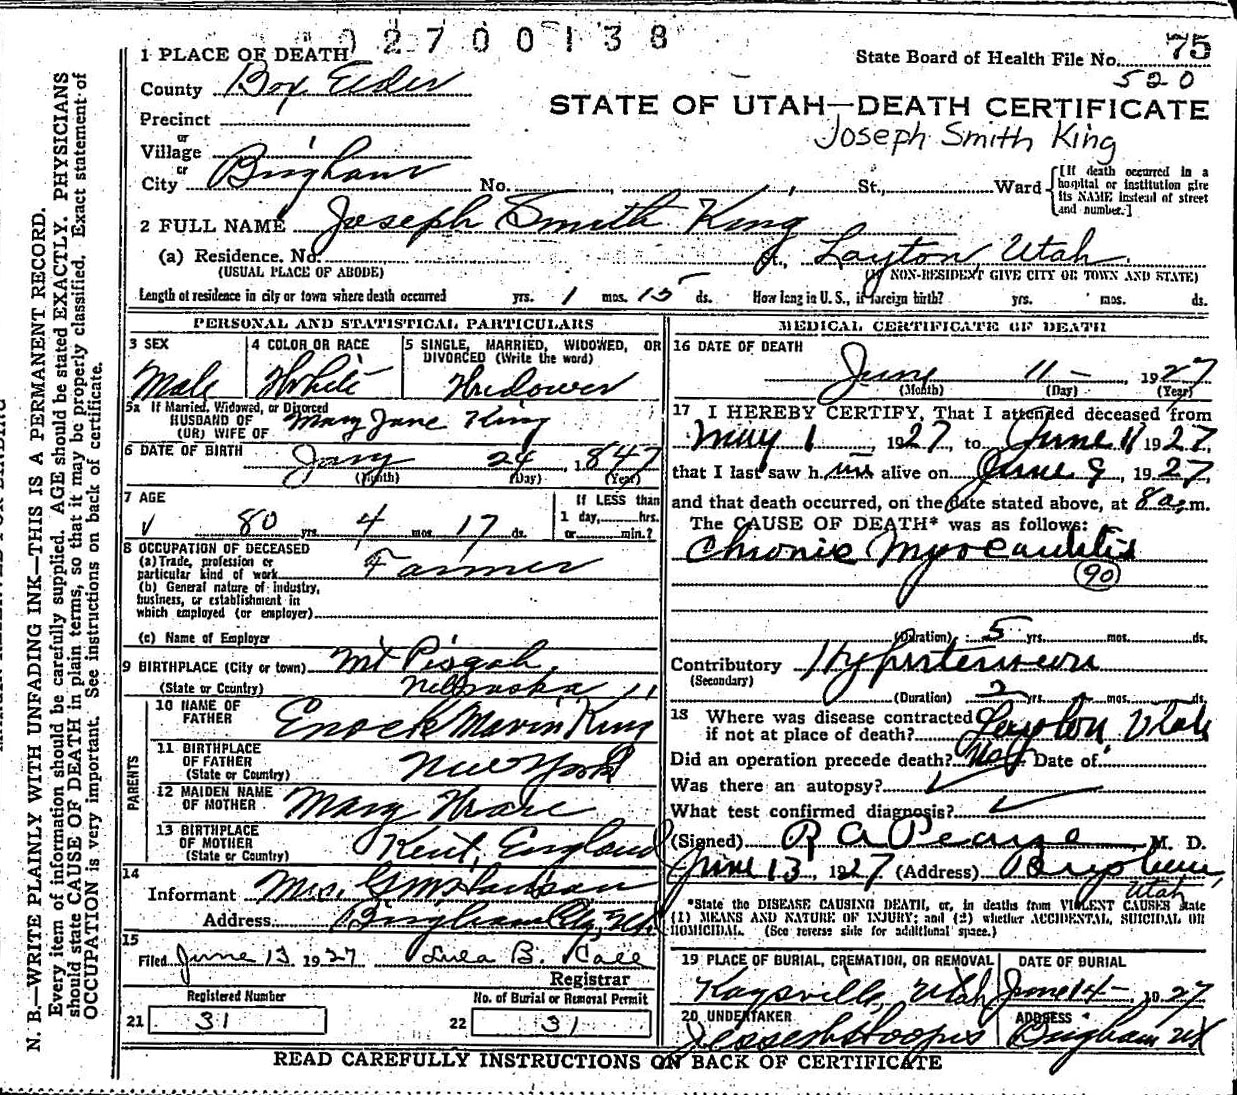 02700138
1 PLACE OF DEATH
State Board of Health File No. 75
520
County Box Elder
STATE OF UTAH—DEATH CERTIFICATE
Precinct
Joseph Smith King
or
Village
or
City Brigham No. , St., Ward
[If death occurred in a hospital or institution give its NAME instead of street and number.]
2 FULL NAME Joseph Smith King
(a) Residence. No. St., Layton Utah.
(USUAL PLACE OF ABODE)
(If NON-RESIDENT GIVE CITY OR TOWN AND STATE)
Length of residence in city or town where death occurred yrs. 1 mos. 15 ds. How long in U. S., if foreign birth? yrs. mos. ds.
PERSONAL AND STATISTICAL PARTICULARS
3 SEX
Male
4 COLOR OR RACE
White
5 SINGLE, MARRIED, WIDOWED, OR
DIVORCED (Write the word)
Widower
5a If Married, Widowed, or Divorced
HUSBAND OF
(OR) WIFE OF Mary Jane King
6 DATE OF BIRTH Jany 24, 1847
(Month) (Day) (Year)
7 AGE
80 yrs. 4 mos. 17 ds.
If LESS than
1 day, hrs.
or min.?
8 OCCUPATION OF DECEASED
(a) Trade, profession or
particular kind of work Farmer
(b) General nature of industry,
business, or establishment in
which employed (or employer)
(c) Name of Employer
9 BIRTHPLACE (City or town) Mt Pisgah,
(State or Country) Nebraska
PARENTS
10 NAME OF
FATHER Enock Marvin King
11 BIRTHPLACE
OF FATHER
(State or Country) New York
12 MAIDEN NAME
OF MOTHER Mary
13 BIRTHPLACE
OF MOTHER
(State or Country) Kent, England
14
Informant Mrs.
Address Brigham City, Ut.
15
Filed June 13 1927 Lula B. Call
Registrar
Registered Number
21 31
No. of Burial or Removal Permit
22 31
MEDICAL CERTIFICATE OF DEATH
16 DATE OF DEATH
June 11 – , 1927
(Month) (Day) (Year)
17 I HEREBY CERTIFY, That I attended deceased from
May 1 , 1927 to June 11 1927,
that I last saw him alive on June 9, 1927,
and that death occurred, on the date stated above, at 8 a. m.
The CAUSE OF DEATH* was as follows:
Chronic Myocarditis
90
(Duration) 5 yrs. mos. ds.
Contributory Hypertension
(Secondary)
(Duration) 2 yrs. mos. ds.
18 Where was disease contracted
if not at place of death? Layton, Utah
Did an operation precede death? No Date of
Was there an autopsy?
What test confirmed diagnosis?
(Signed) R A Pearse M. D.
June 13, 1927 (Address) Brigham,
Utah
*State the DISEASE CAUSING DEATH, or, in deaths from VIOLENT CAUSES state
(1) MEANS AND NATURE OF INJURY; and (2) whether ACCIDENTAL, SUICIDAL OR
HOMICIDAL. (See reverse side for additional space.)
19 PLACE OF BURIAL, CREMATION, OR REMOVAL
Kaysville, Utah
DATE OF BURIAL
June 14 –, 1927
20 UNDERTAKER
ADDRESS
Brigham Ut
READ CAREFULLY INSTRUCTIONS ON BACK OF CERTIFICATE
N. B.—WRITE PLAINLY WITH UNFADING INK—THIS IS A PERMANENT RECORD.
Every item of information should be carefully supplied. AGE should be stated EXACTLY. PHYSICIANS
should state CAUSE OF DEATH in plain terms, so that it may be properly classified. Exact statement of
OCCUPATION is very important. See instructions on back of certificate.